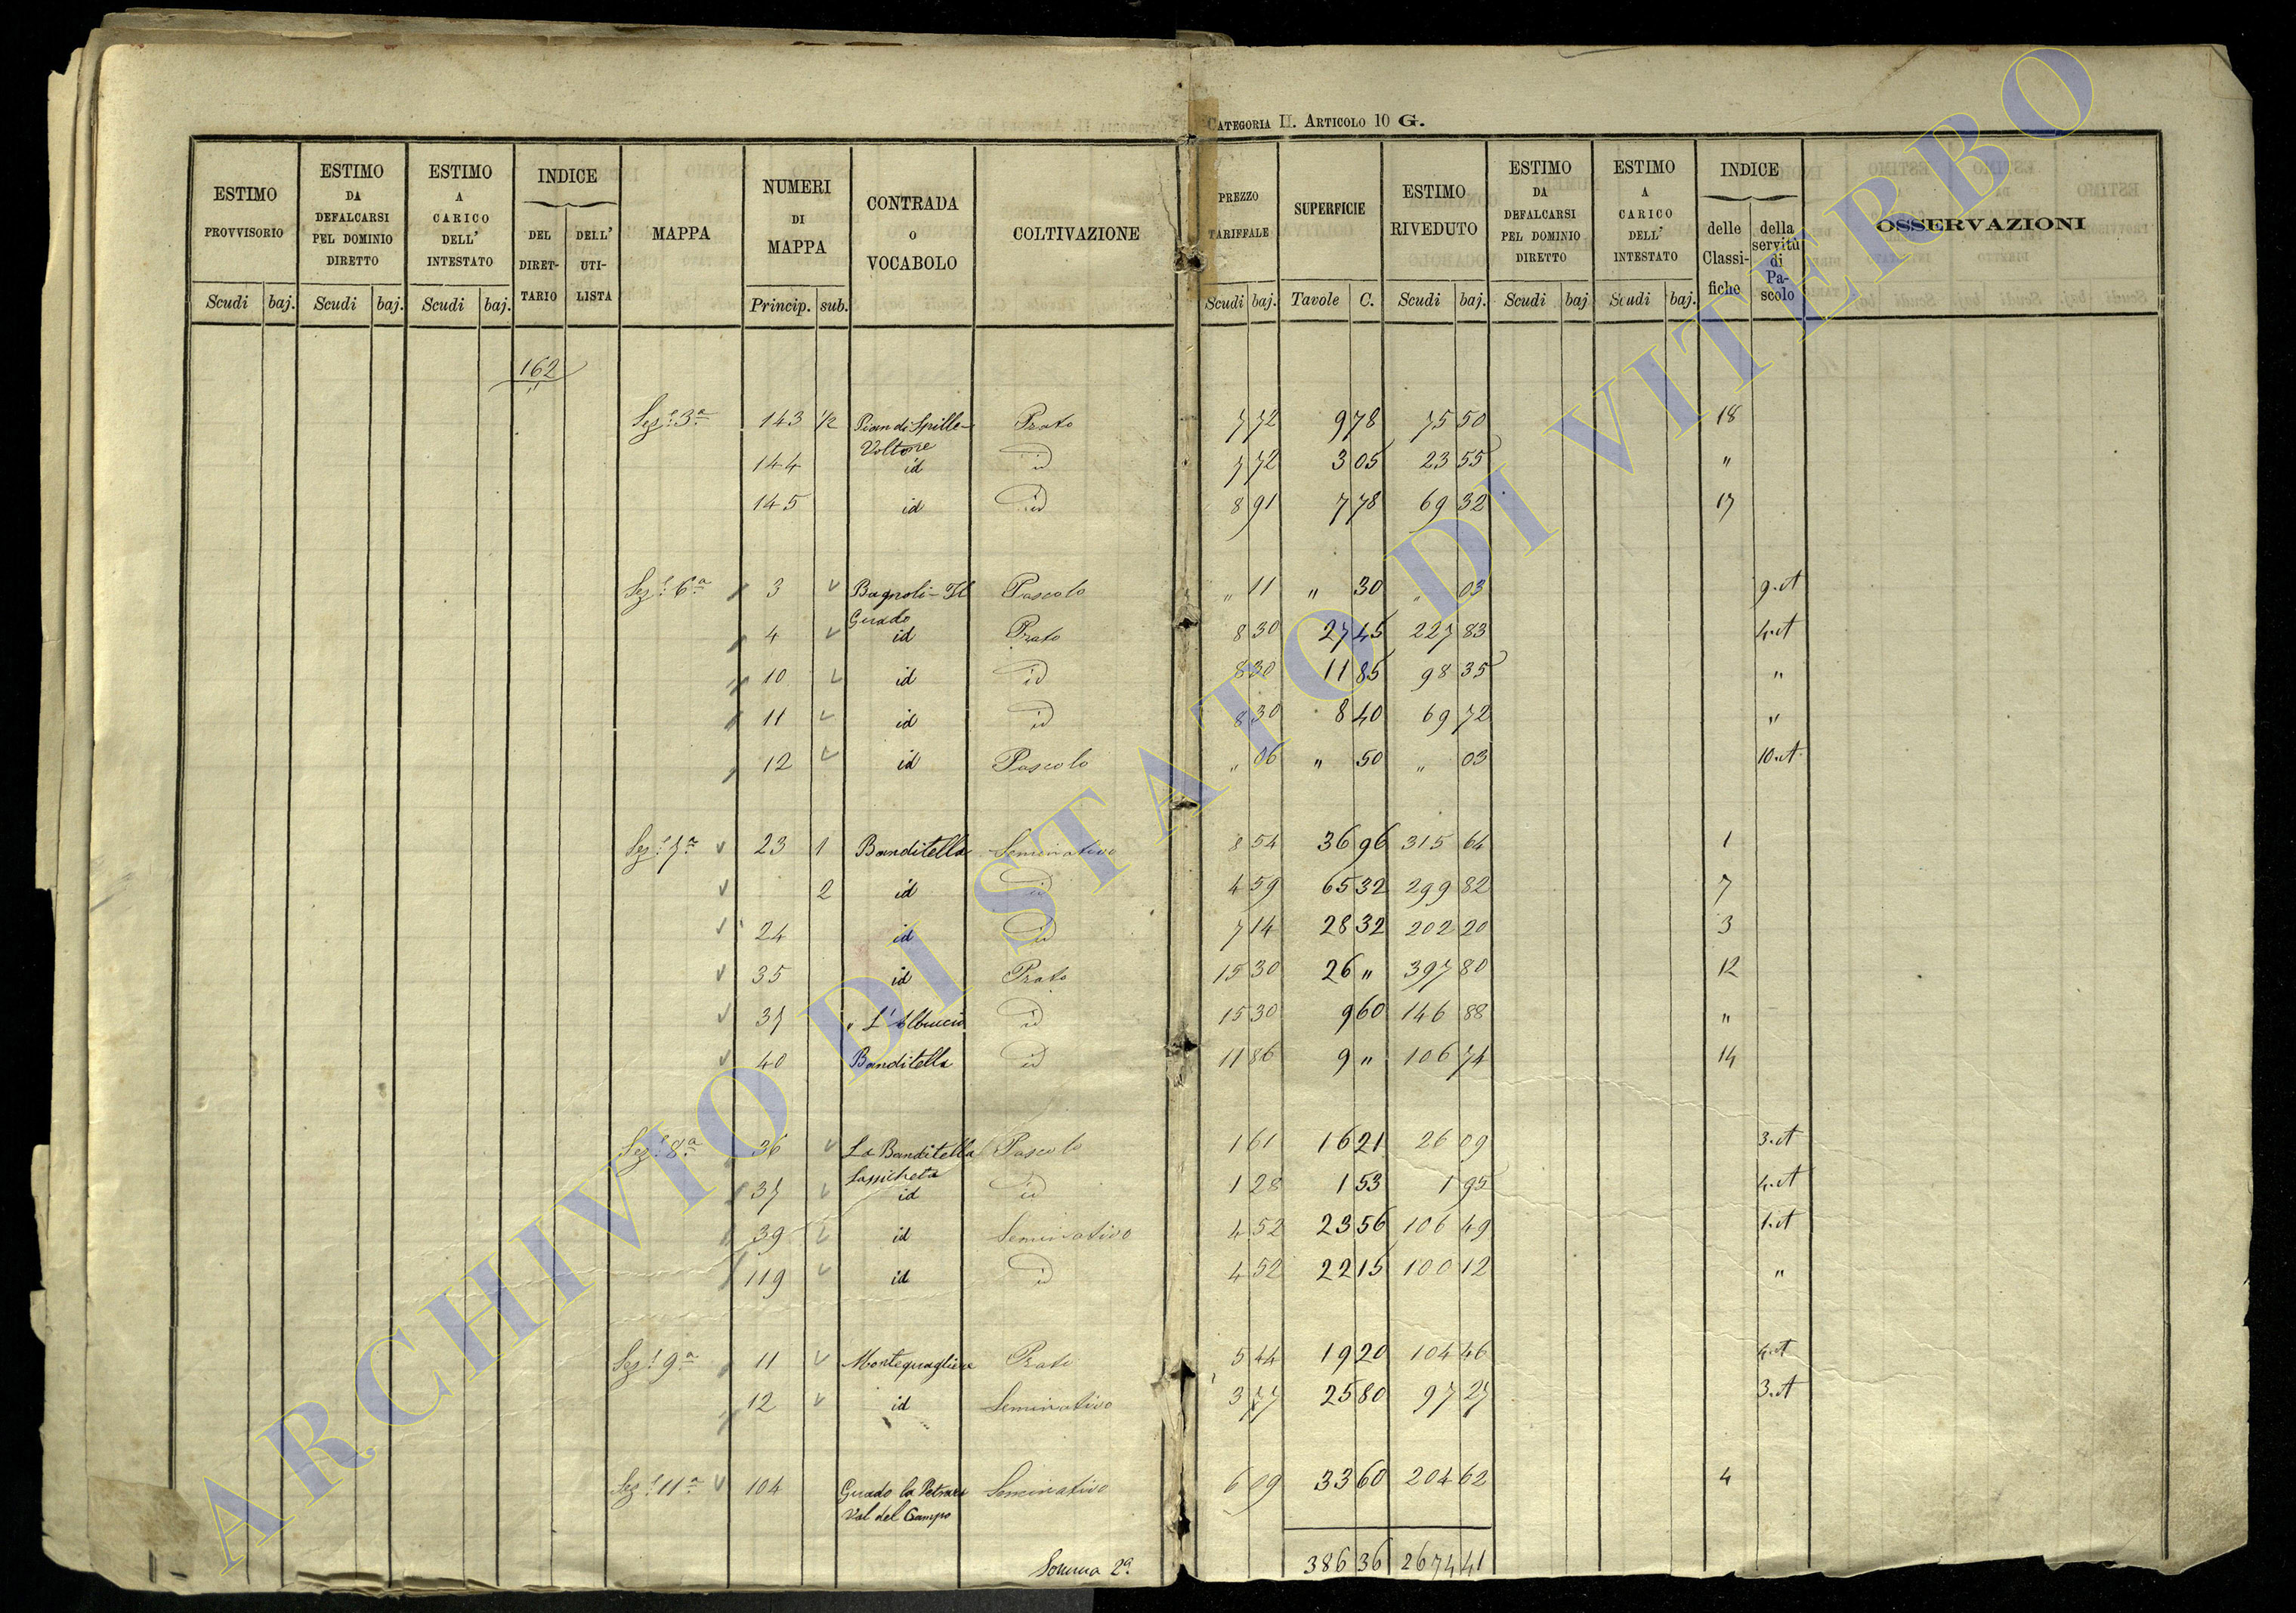 CATEGORIA II. ARTICOLO 10 G.
ESTIMO PROVVISORIO Scudi baj. ESTIMO DA DEFALCARSI PEL DOMINIO DIRETTO Scudi baj. ESTIMO A CARICO DELL' INTESTATO Scudi baj. INDICE DEL DIRET- TARIO DELL' UTI- LISTA MAPPA NUMERI DI MAPPA Princip. sub. CONTRADA o VOCABOLO COLTIVAZIONE PREZZO TARIFFALE Scudi baj. SUPERFICIE Tavole C. ESTIMO RIVEDUTO Scudi baj. ESTIMO DA DEFALCARSI PEL DOMINIO DIRETTO Scudi baj ESTIMO A CARICO DELL' INTESTATO Scudi baj. INDICE delle Classi- fiche della servitù di Pa- scolo OSSERVAZIONI
162
"
Sez.e 3a 143 1/2 Pian di Spille- Prato 7 72 9 78 75 50 18
Voltone
144 id id 7 72 3 05 23 55 "
145 id id 8 91 7 78 69 32 17
Sez.e 6a 3 Bagnoli - Il Pascolo " 11 " 30 " 03 9.A
Guado
4 id Prato 8 30 27 45 227 83 4.A
10 id id 8 30 11 85 98 35 "
11 id id 8 30 8 40 69 72 "
12 id Pascolo " 06 " 50 " 03 10.A
Sez.e 7a 23 1 Banditella Seminativo 8 54 36 96 315 64 1
2 id id 4 59 65 32 299 82 7
24 id id 7 14 28 32 202 20 3
35 id Prato 15 30 26 " 397 80 12
37 " L'Albuccio id 15 30 9 60 146 88 "
40 Banditella id 11 86 9 " 106 74 14
Sez.e 8a 36 La Banditella Pascolo 1 61 16 21 26 09 3.A
Sassicheta
37 id id 1 28 1 53 1 95 4.A
39 id Seminativo 4 52 23 56 106 49 1.A
119 id id 4 52 22 15 100 12 "
Sez.e 9a 11 Montequagliere Prato 5 44 19 20 104 46 4.A
12 id Seminativo 3 77 25 80 97 27 3.A
Sez.e 11a 104 Guado la Petrara Seminativo 6 09 33 60 204 62 4
Val del Campo
Somma 2a. 386 36 2674 41
ARCHIVIO DI STATO DI VITERBO